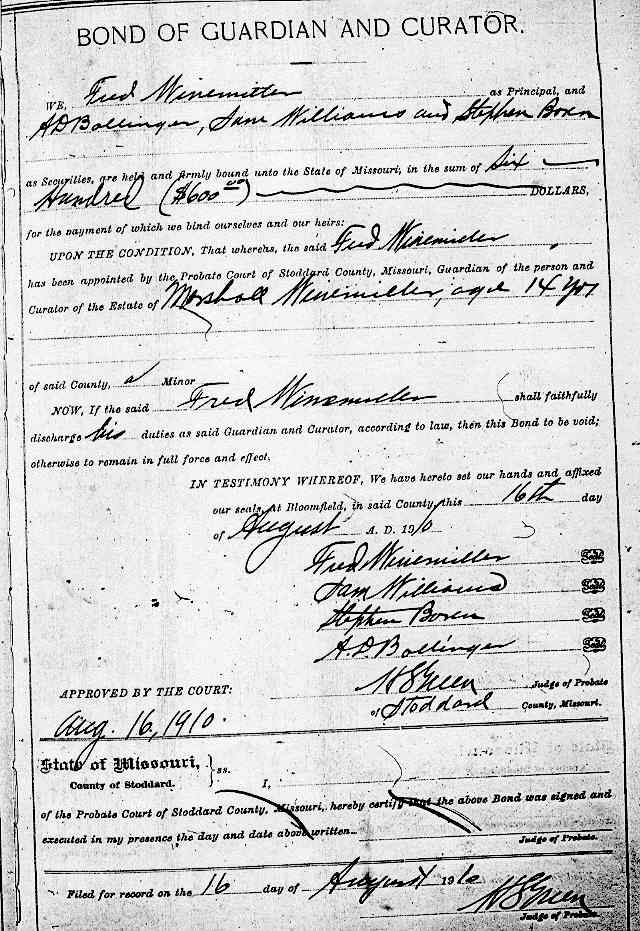 BOND OF GUARDIAN AND CURATOR.
WE, Fred Winemiller as Principal, and
A.D. Bollinger, Sam Williams and Stephen Boren
as Securities, are held and firmly bound unto the State of Missouri, in the sum of Six
Hundred ($600 00) DOLLARS,
for the payment of which we bind ourselves and our heirs:
UPON THE CONDITION, That whereas, the said Fred Winemiller
has been appointed by the Probate Court of Stoddard County, Missouri, Guardian of the person and
Curator of the Estate of Marshall Winemiller, age 14 yrs
of said County, a Minor
NOW, If the said Fred Winemiller shall faithfully
discharge his duties as said Guardian and Curator, according to law, then this Bond to be void;
otherwise to remain in full force and effect.
IN TESTIMONY WHEREOF, We have hereto set our hands and affixed
our seals, at Bloomfield, in said County, this 16th day
of August A. D. 1910
Fred Winemiller Seal
Sam Williams Seal
Stephen Boren Seal
A.D. Bollinger Seal
APPROVED BY THE COURT: Green Judge of Probate
of Stoddard County, Missouri.
Aug. 16, 1910.
State of Missouri, } ss.
County of Stoddard. I,
of the Probate Court of Stoddard County, Missouri, hereby certify that the above Bond was signed and
executed in my presence the day and date above written.
Judge of Probate.
Filed for record on the 16 day of August 1910
Green
Judge of Probate.